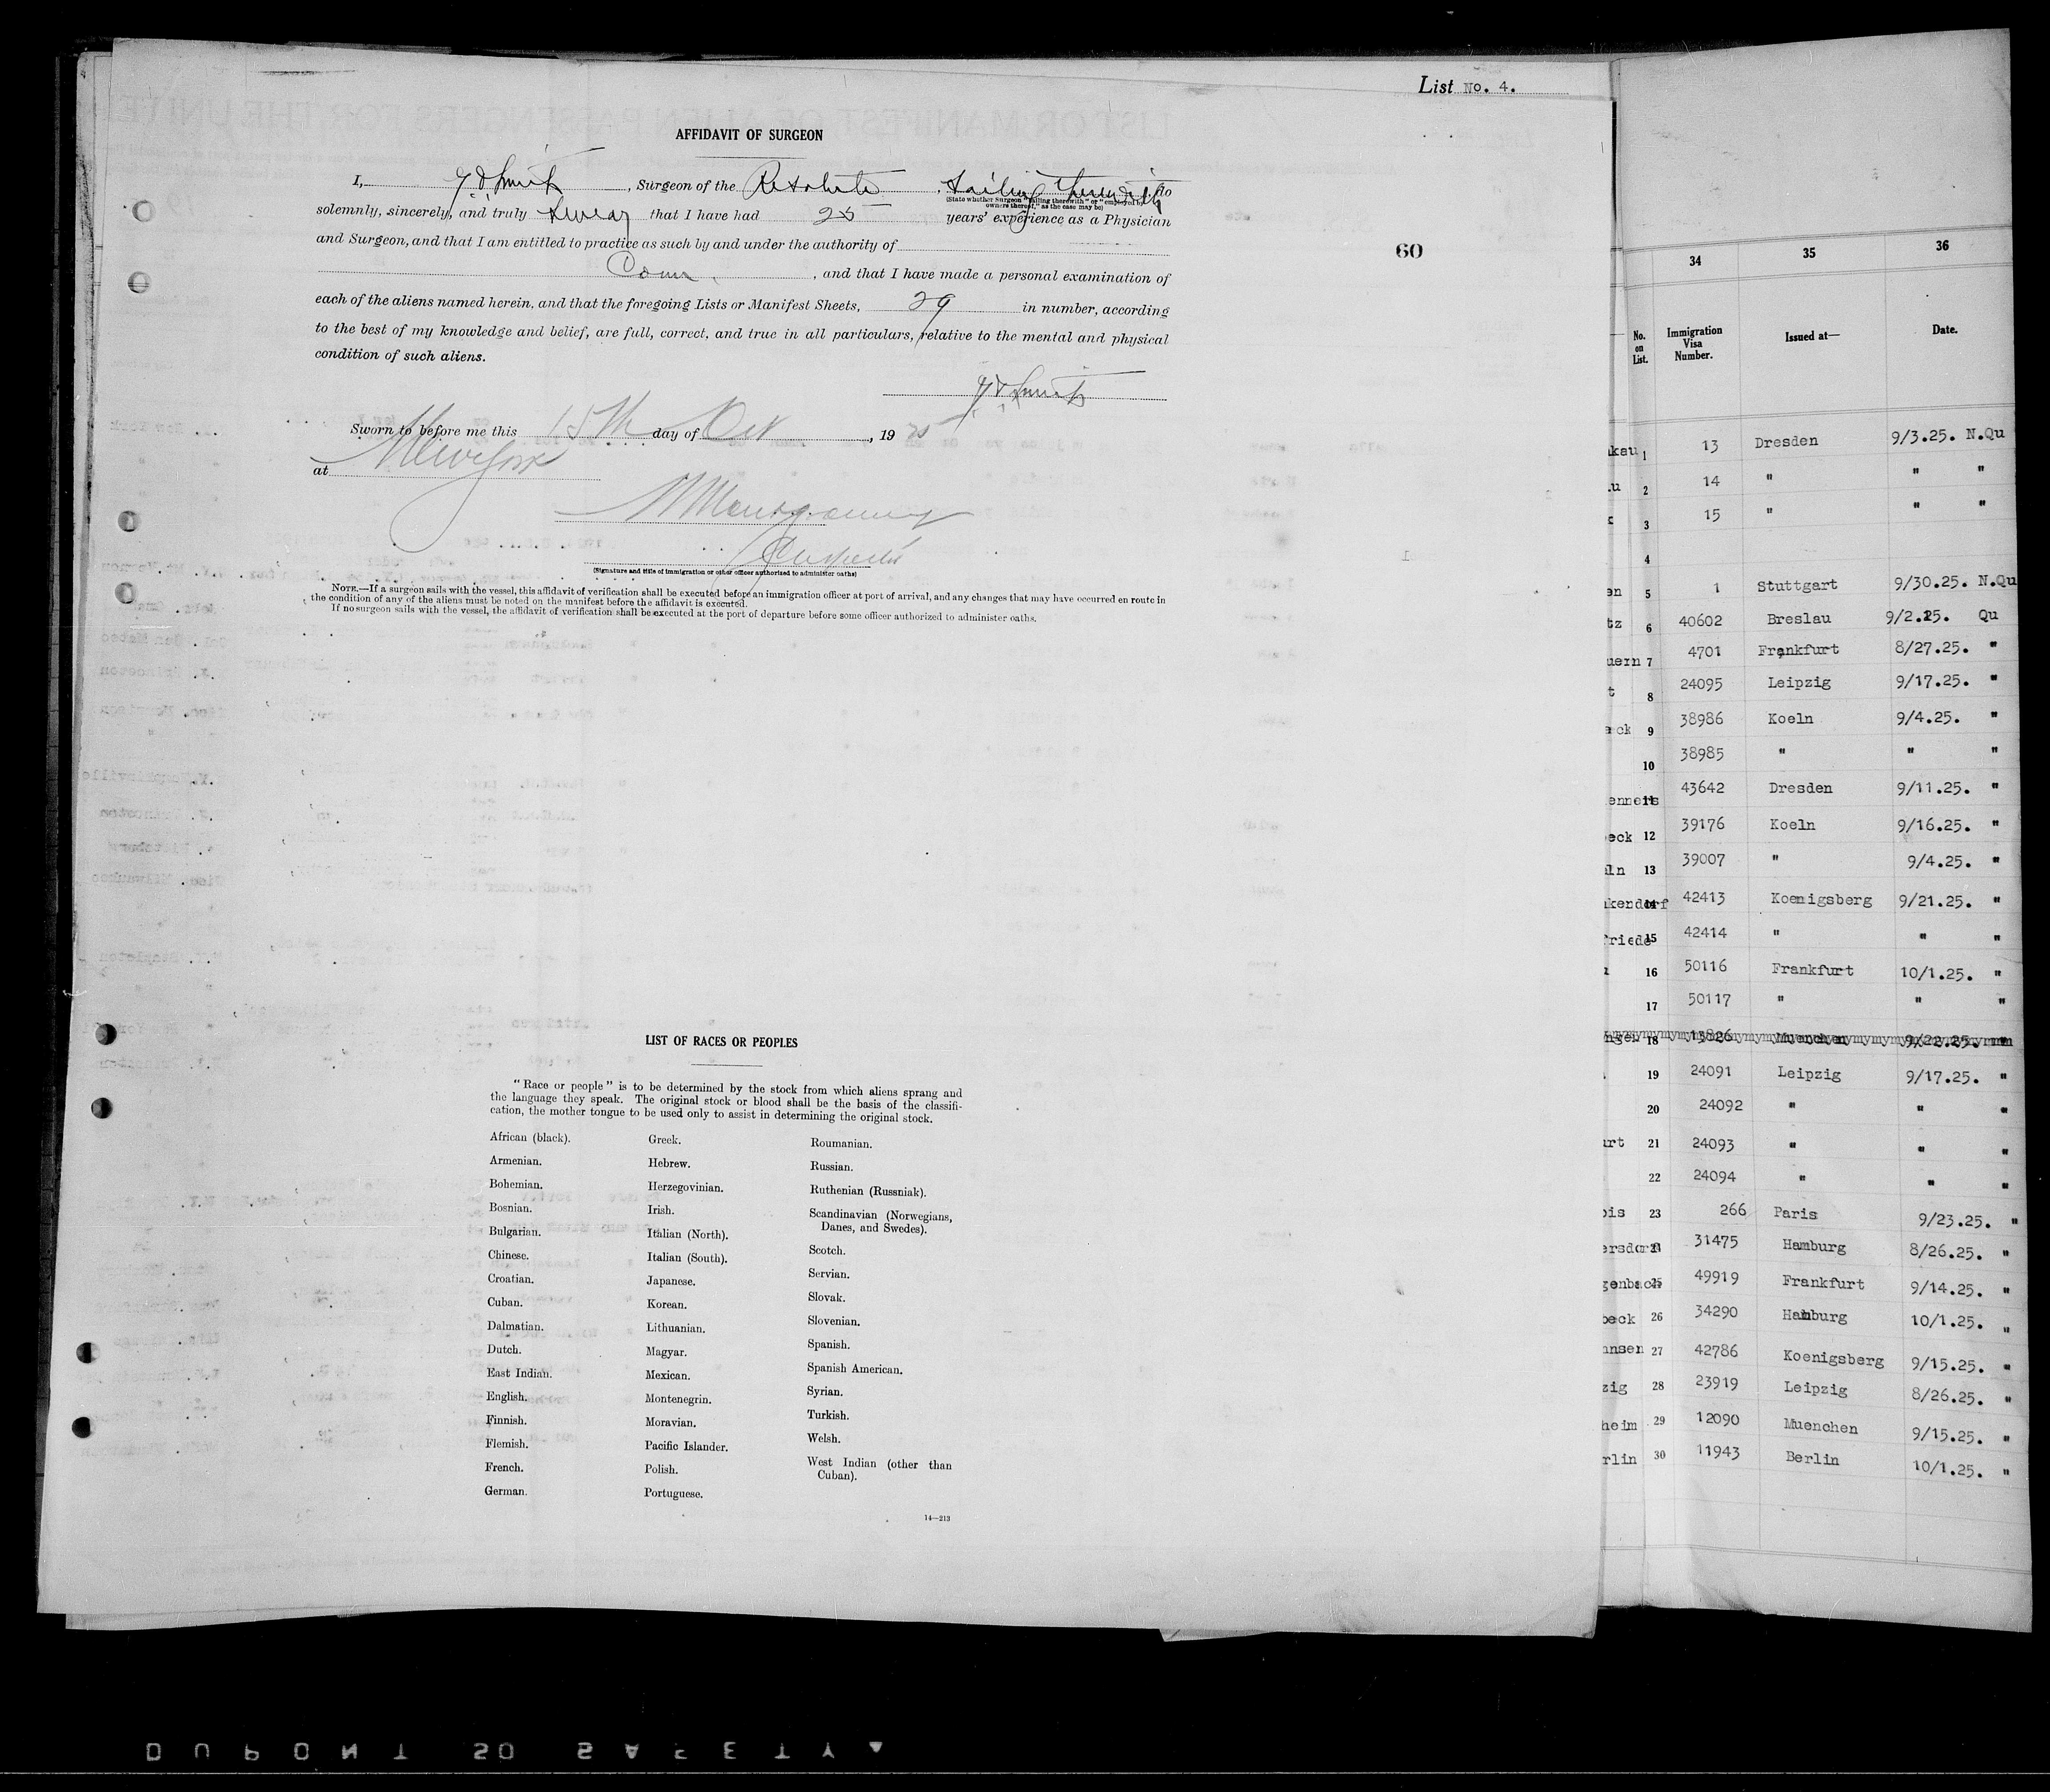 List No. 4.
AFFIDAVIT OF SURGEON
I, Smith, Surgeon of the Resolute, sailing therewith, do
(State whether Surgeon "sailing therewith" or "employed by
owners thereof," as the case may be)
solemnly, sincerely, and truly swear that I have had 25 years' experience as a Physician
and Surgeon, and that I am entitled to practice as such by and under the authority of
Conn, and that I have made a personal examination of
each of the aliens named herein, and that the foregoing Lists or Manifest Sheets, 29 in number, according
to the best of my knowledge and belief, are full, correct, and true in all particulars, relative to the mental and physical
condition of such aliens.
Smith
Sworn to before me this 15th day of Oct, 19 25
at New York
Inspector
(Signature and title of immigration or other officer authorized to administer oaths)
NOTE.—If a surgeon sails with the vessel, this affidavit of verification shall be executed before an immigration officer at port of arrival, and any changes that may have occurred en route in
the condition of any of the aliens must be noted on the manifest before the affidavit is executed.
If no surgeon sails with the vessel, the affidavit of verification shall be executed at the port of departure before some officer authorized to administer oaths.
60
LIST OF RACES OR PEOPLES
"Race or people" is to be determined by the stock from which aliens sprang and
the language they speak. The original stock or blood shall be the basis of the classifi-
cation, the mother tongue to be used only to assist in determining the original stock.
African (black).
Armenian.
Bohemian.
Bosnian.
Bulgarian.
Chinese.
Croatian.
Cuban.
Dalmatian.
Dutch.
East Indian.
English.
Finnish.
Flemish.
French.
German.
Greek.
Hebrew.
Herzegovinian.
Irish.
Italian (North).
Italian (South).
Japanese.
Korean.
Lithuanian.
Magyar.
Mexican.
Montenegrin.
Moravian.
Pacific Islander.
Polish.
Portuguese.
Roumanian.
Russian.
Ruthenian (Russniak).
Scandinavian (Norwegians,
Danes, and Swedes).
Scotch.
Servian.
Slovak.
Slovenian.
Spanish.
Spanish American.
Syrian.
Turkish.
Welsh.
West Indian (other than
Cuban).
14—213
34 35 36
No. on List. Immigration Visa Number. Issued at— Date.
kau 1 13 Dresden 9/3.25. N.Qu
u 2 14 " " "
3 15 " " "
4
en 5 1 Stuttgart 9/30.25. N.Qu
tz 6 40602 Breslau 9/2.25. Qu
uern 7 4701 Frankfurt 8/27.25. "
t 8 24095 Leipzig 9/17.25. "
eck 9 38986 Koeln 9/4.25. "
10 38985 " " "
enners 11 43642 Dresden 9/11.25. "
eck 12 39176 Koeln 9/16.25. "
ln 13 39007 " 9/4.25. "
kendorf 14 42413 Koenigsberg 9/21.25. "
friede 15 42414 " " "
16 50116 Frankfurt 10/1.25. "
17 50117 " " "
ngen 18 13826 Muenchen 9/22.25. "
19 24091 Leipzig 9/17.25. "
20 24092 " " "
urt 21 24093 " " "
22 24094 " " "
is 23 266 Paris 9/23.25. "
ersdorf 24 31475 Hamburg 8/26.25. "
genbach 25 49919 Frankfurt 9/14.25. "
beck 26 34290 Hamburg 10/1.25. "
ansen 27 42786 Koenigsberg 9/15.25. "
zig 28 23919 Leipzig 8/26.25. "
heim 29 12090 Muenchen 9/15.25. "
rlin 30 11943 Berlin 10/1.25. "
DUPONT SAFETY